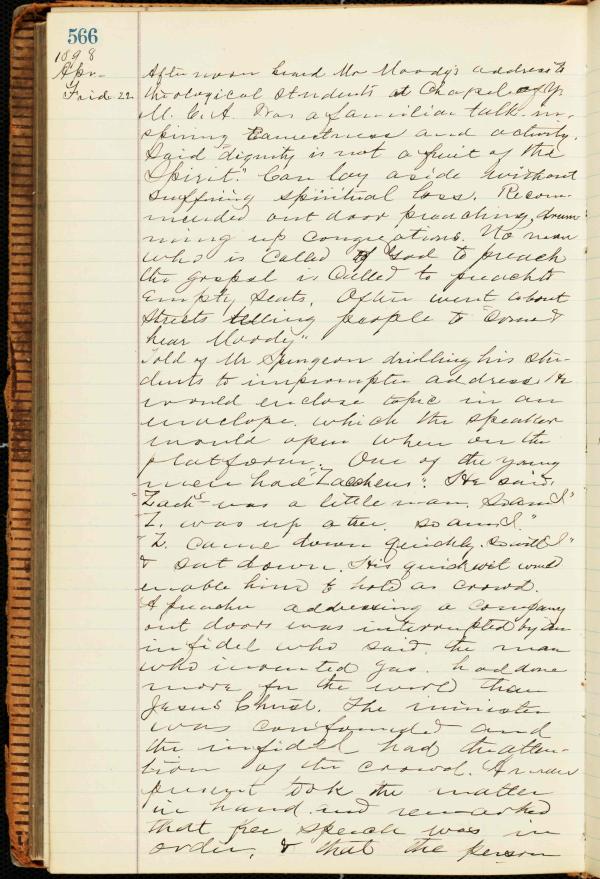 566
1898
Apr.
Frid. 22
Afternoon heard Mr Moody's address to
theological students at Chapel of Y.
M. C. A. Was a familiar talk in-
spiring earnestness and activity.
Said "dignity is not a fruit of the
Spirit." Can lay aside without
suffering spiritual loss. Recom-
mended out door preaching, drum-
ming up congregations. No man
who is called of God to preach
the gospel is called to preach to
empty seats. Often went about
streets telling people to "Come &
hear Moody".
Told of Mr Spurgeon drilling his stu-
dents to impromptu address. He
would enclose topic in an
envelope, which the speaker
would open when on the
platform. One of the young
men had "Zaccheus". He said,
"Zachs was a little man. So am I"
Z. was up a tree. so am I."
"Z. came down quickly. so will I"
& sat down. His quick wit would
enable him to hold a crowd.
A preacher addressing a company
out doors was interrupted by an
infidel who said, the man
who invented gas, had done
more for the world than
Jesus Christ. The minister
was confounded and
the infidel had the atten-
tion of the crowd. A man
present took the matter
in hand, and remarked
that free speech was in
order, & that the person